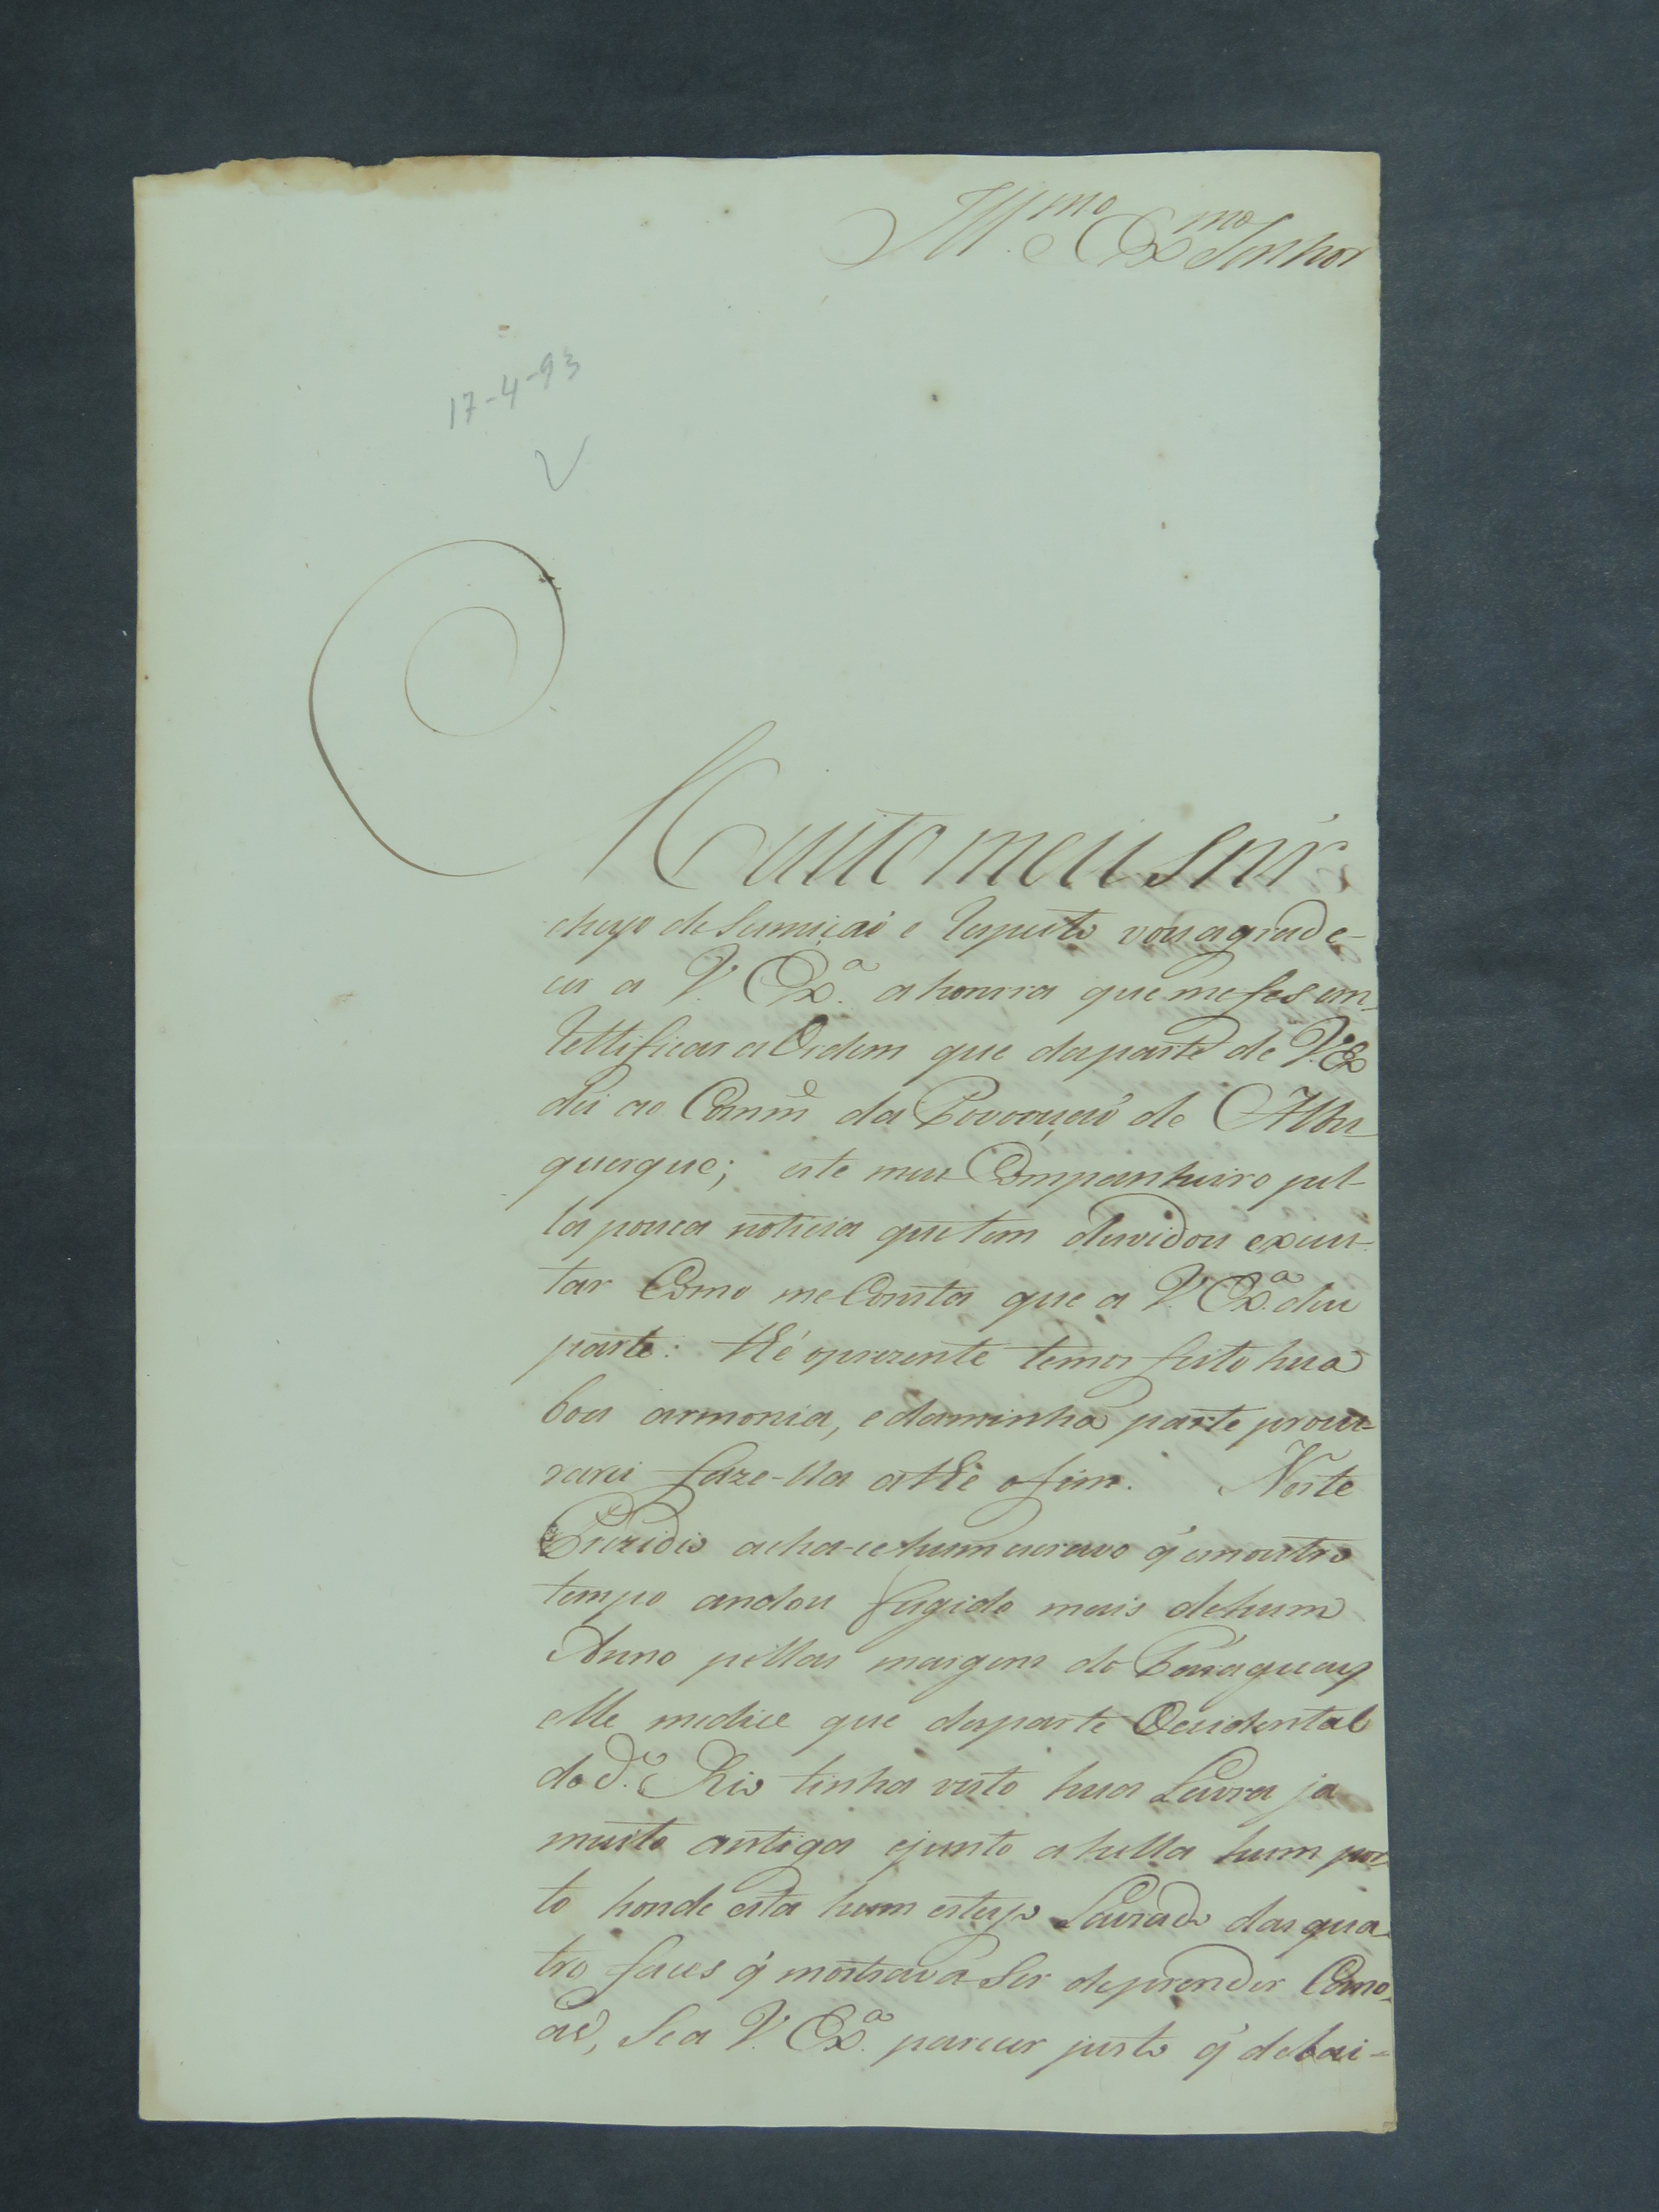 Ill.mo e Ex.mo Senhor
17-4-93
Muito meu Snr
cheyo de Sumiçaõ e Respeito vou agrade-
cer a V. Ex.ª a honrra que me fes em
Rettificar a Ordem que da parte de V. Ex
dei ao Comm.e da Povoaçaõ de Albu
querque; este meu Companheiro pel-
la pouca noticia que tem duvidou execu-
tar Como me Consta que a V. Ex.ª deu
parte: Hé oprezente temos feito hua
boa armonia, e daminha parte procu-
rarei faze-lla athe ofim. Neste
Prezidio acha-ce hum escravo q' em outro
tempo andou fugido mais dehum
Anno pellas margens do Paraguay
elle medice que daparte Occidental
do d.º Rio tinha visto hua Lavra ja
muito antiga ejunto a hella hum por
to honde esta hum esteyo Lavrado das qua
tro faces q' mostrava Ser deprender Cano
as, Se a V. Ex.ª parecer justo q' debai-